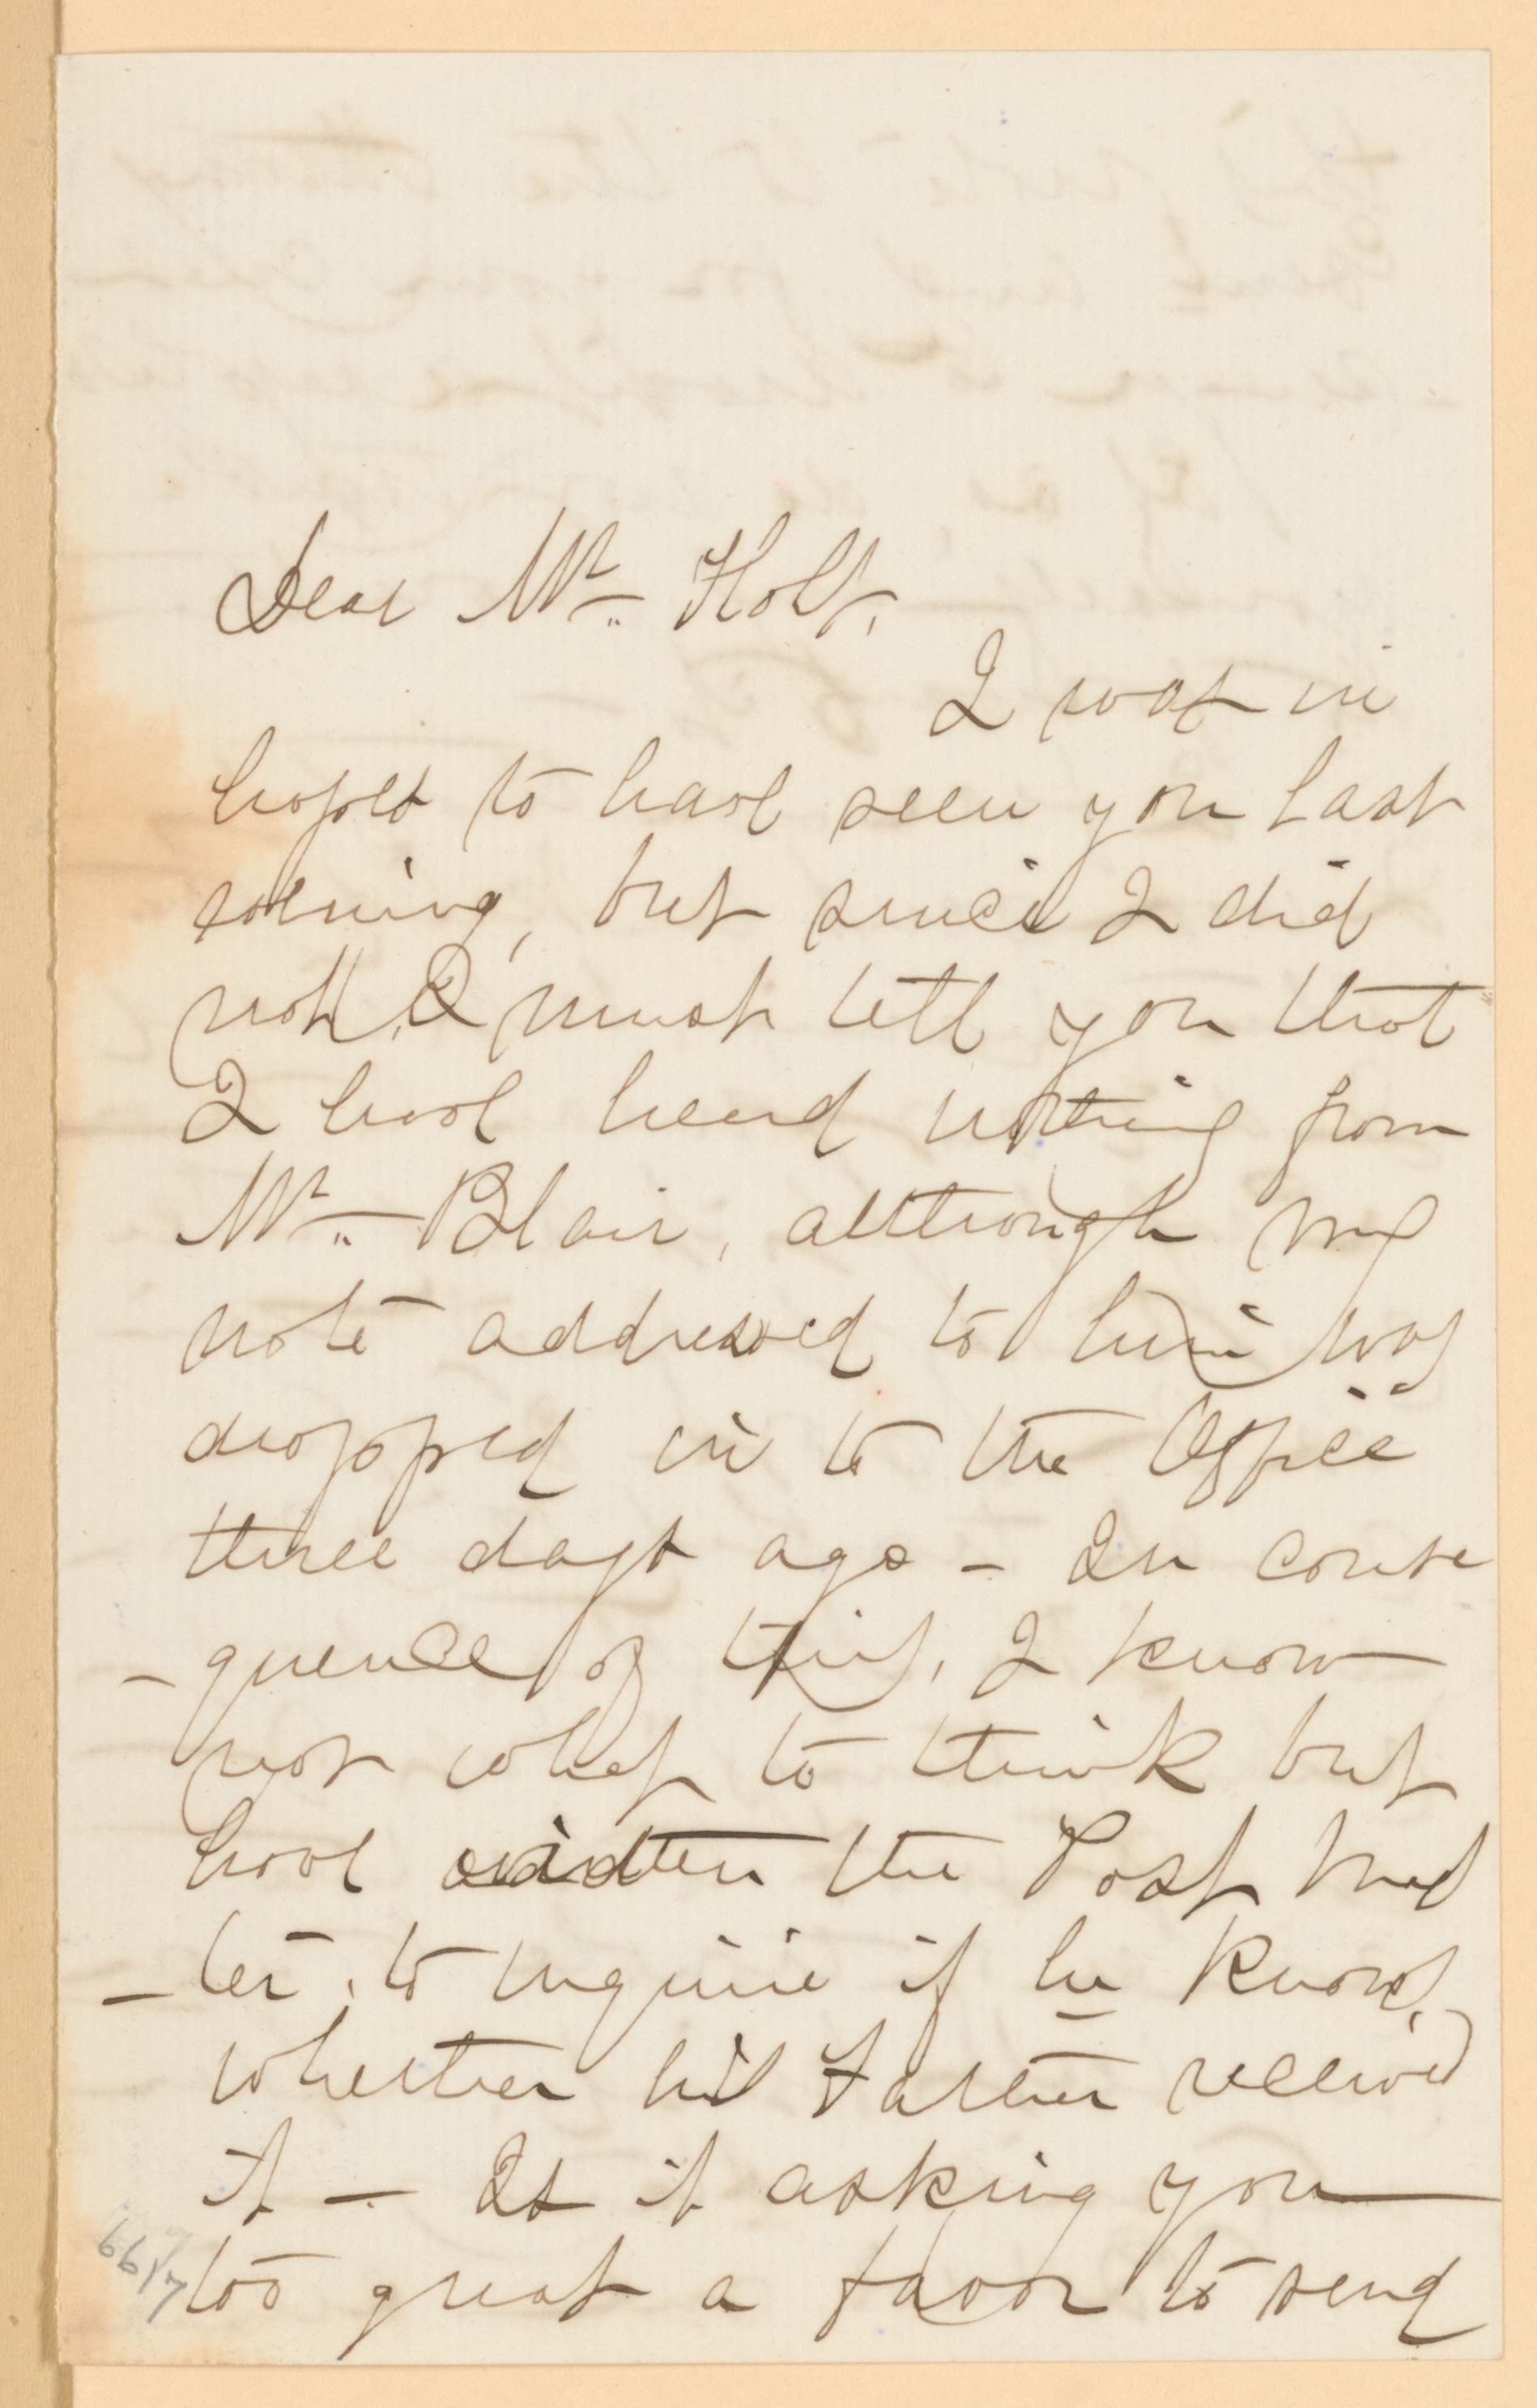 Dear Mr. Holt,
I was in
hopes to have seen you last
evening, but since I did
not, I must tell you that
I have heard nothing from
Mr. Blair, although my
note addressed to him was
dropped in to the Office
three days ago - In conse
- quence of this, I know
not what to think but
have written the Post Mas
- ter, to inquire if he knows,
whether his Father received
it - Is it asking you
too great a favor to send
6617